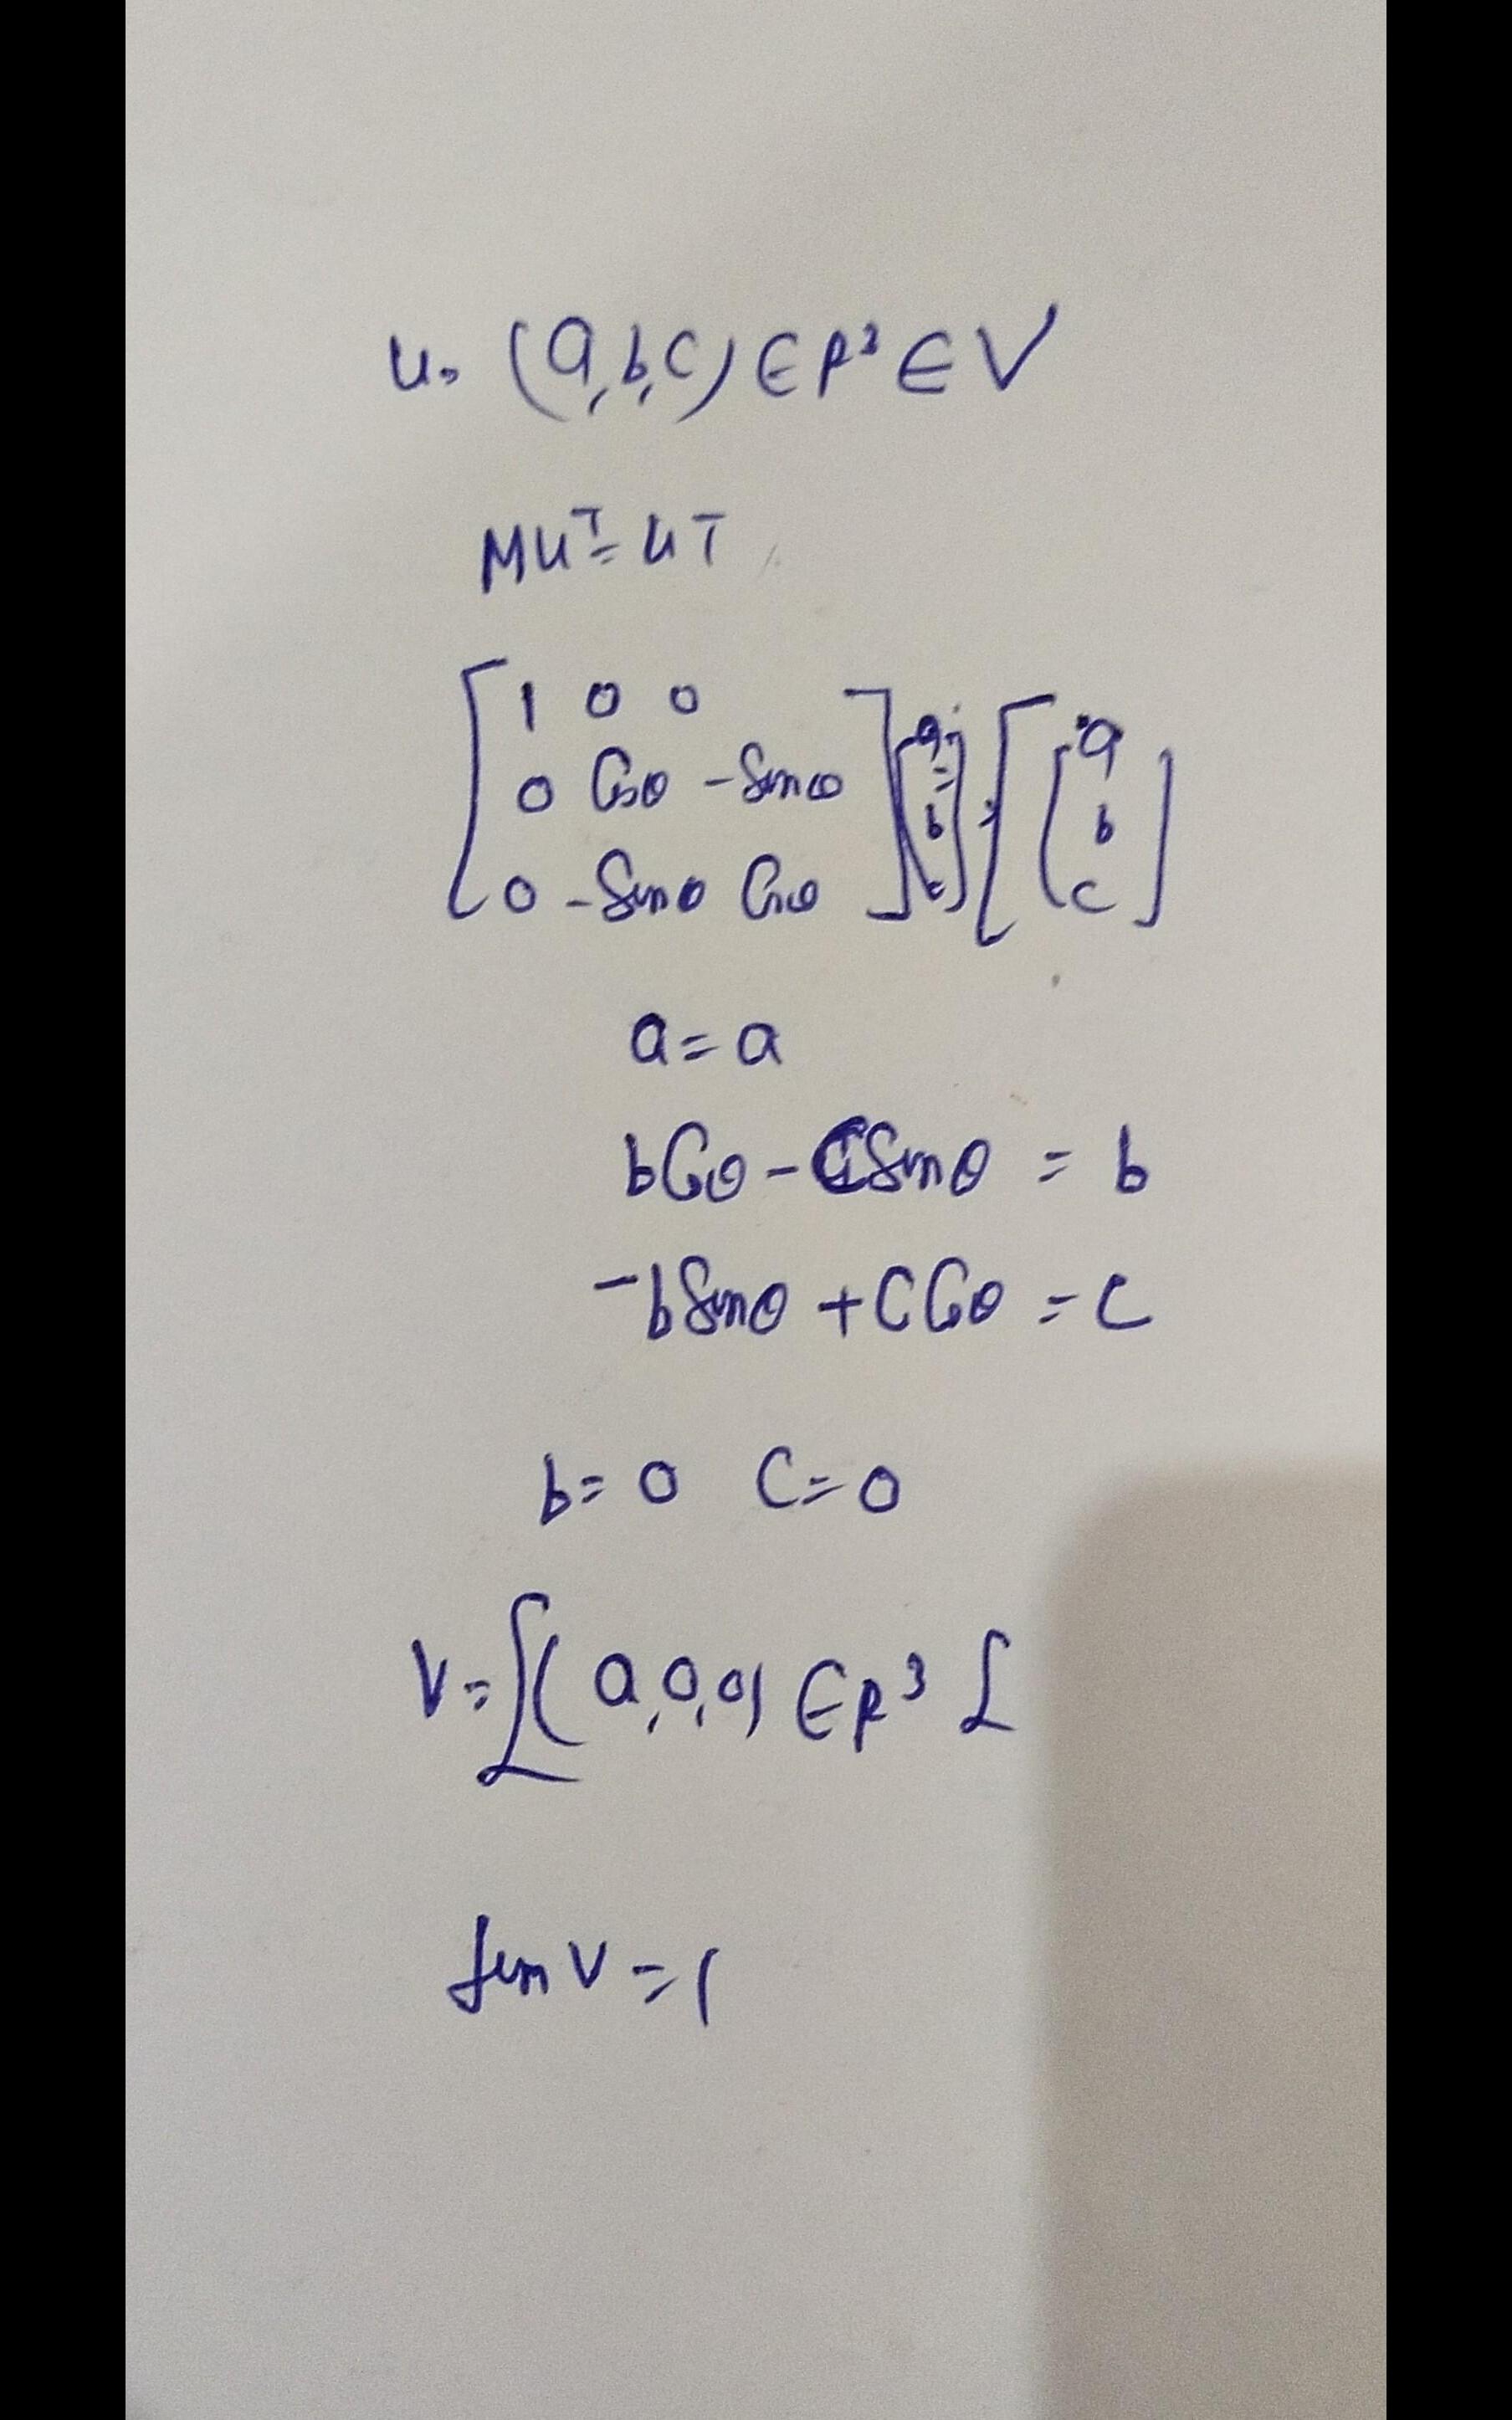 u = (a, b, c) ∈ R³ ∈ V
Mu^T = u^T
[1 0 0
0 Cosθ -Sinθ
0 -Sinθ Cosθ] [a b c] = [a b c]
a = a
bCosθ - CSinθ = b
-bSinθ + CCosθ = C
b = 0 C = 0
V = {(a, 0, 0) ∈ R³}
dim V = 1